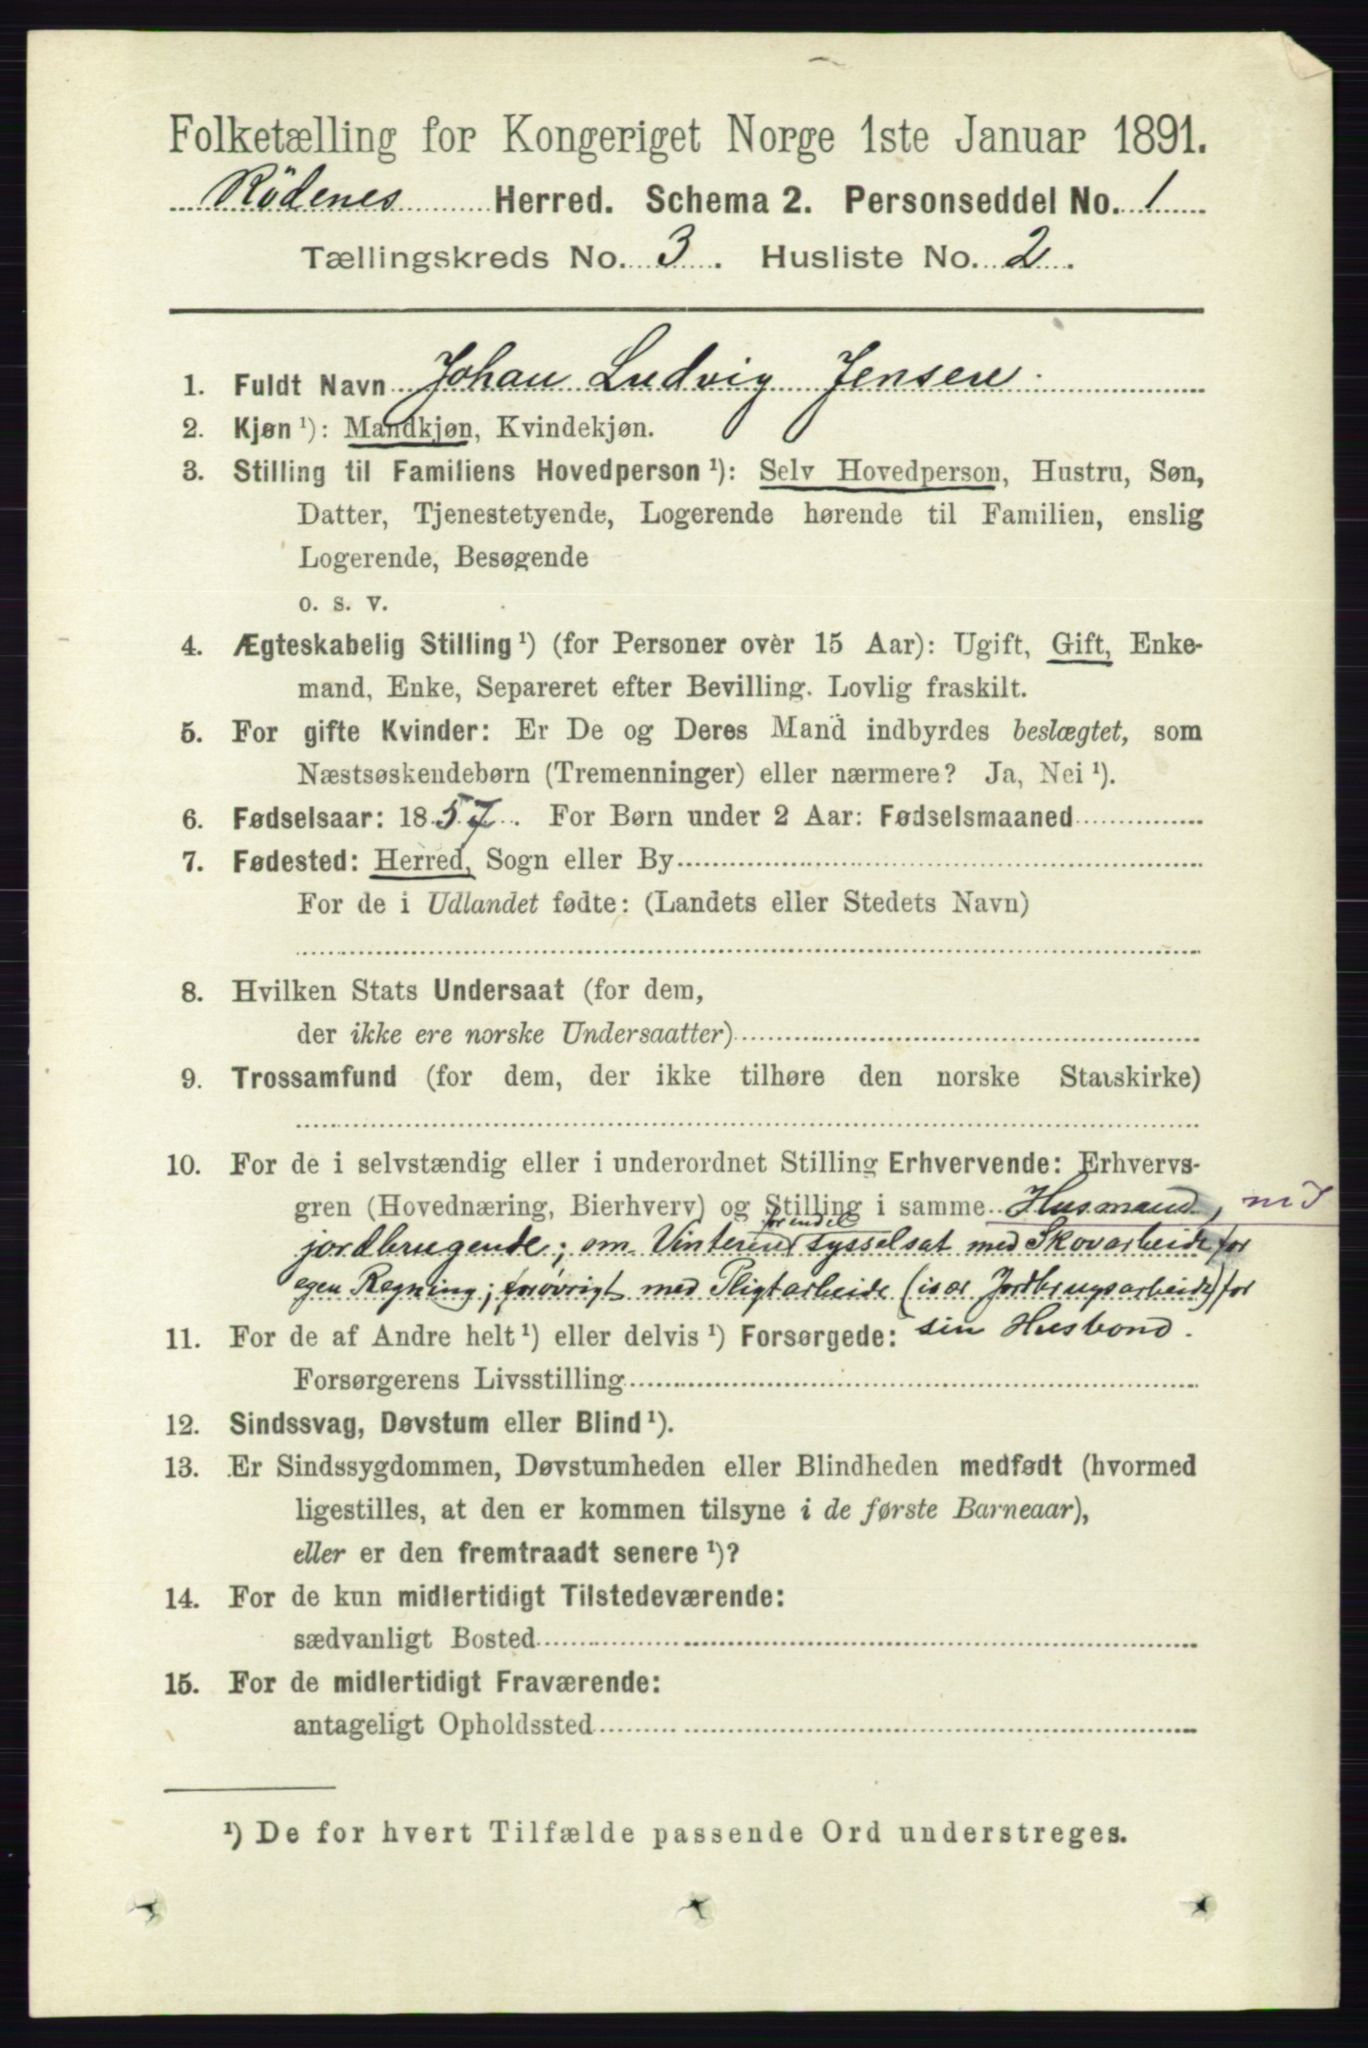 Folketælling for Kongeriget Norge 1ste Januar 1891.
Rödenes Herred. Schema 2. Personseddel No. 1
Tællingskreds No. 3. Husliste No. 2.
1. Fuldt Navn Johan Ludvig Jensen.
2. Kjøn ¹): Mandkjøn, Kvindekjøn.
3. Stilling til Familiens Hovedperson ¹): Selv Hovedperson, Hustru, Søn,
Datter, Tjenestetyende, Logerende hørende til Familien, enslig
Logerende, Besøgende
o. s. v.
4. Ægteskabelig Stilling ¹) (for Personer over 15 Aar): Ugift, Gift, Enke-
mand, Enke, Separeret efter Bevilling. Lovlig fraskilt.
5. For gifte Kvinder: Er De og Deres Mand indbyrdes beslægtet, som
Næstsøskendebørn (Tremenninger) eller nærmere? Ja, Nei ¹).
6. Fødselsaar: 1857. For Børn under 2 Aar: Fødselsmaaned
7. Fødested: Herred, Sogn eller By
For de i Udlandet fødte: (Landets eller Stedets Navn)
8. Hvilken Stats Undersaat (for dem,
der ikke ere norske Undersaatter)
9. Trossamfund (for dem, der ikke tilhøre den norske Statskirke)
10. For de i selvstændig eller i underordnet Stilling Erhvervende: Erhvervs-
gren (Hovednæring, Bierhverv) og Stilling i samme Husmand, m J
jordbrugende; om Vinteren forendel sysselsat med Skovarbeide for
egen Regning; forøvrigt med Pligtarbeide (især Jordbrugsarbeide) for
11. For de af Andre helt ¹) eller delvis ¹) Forsørgede: sin Husbond.
Forsørgerens Livsstilling
12. Sindssvag, Døvstum eller Blind ¹).
13. Er Sindssygdommen, Døvstumheden eller Blindheden medfødt (hvormed
ligestilles, at den er kommen tilsyne i de første Barneaar),
eller er den fremtraadt senere ¹)?
14. For de kun midlertidigt Tilstedeværende:
sædvanligt Bosted
15. For de midlertidigt Fraværende:
antageligt Opholdssted
¹) De for hvert Tilfælde passende Ord understreges.